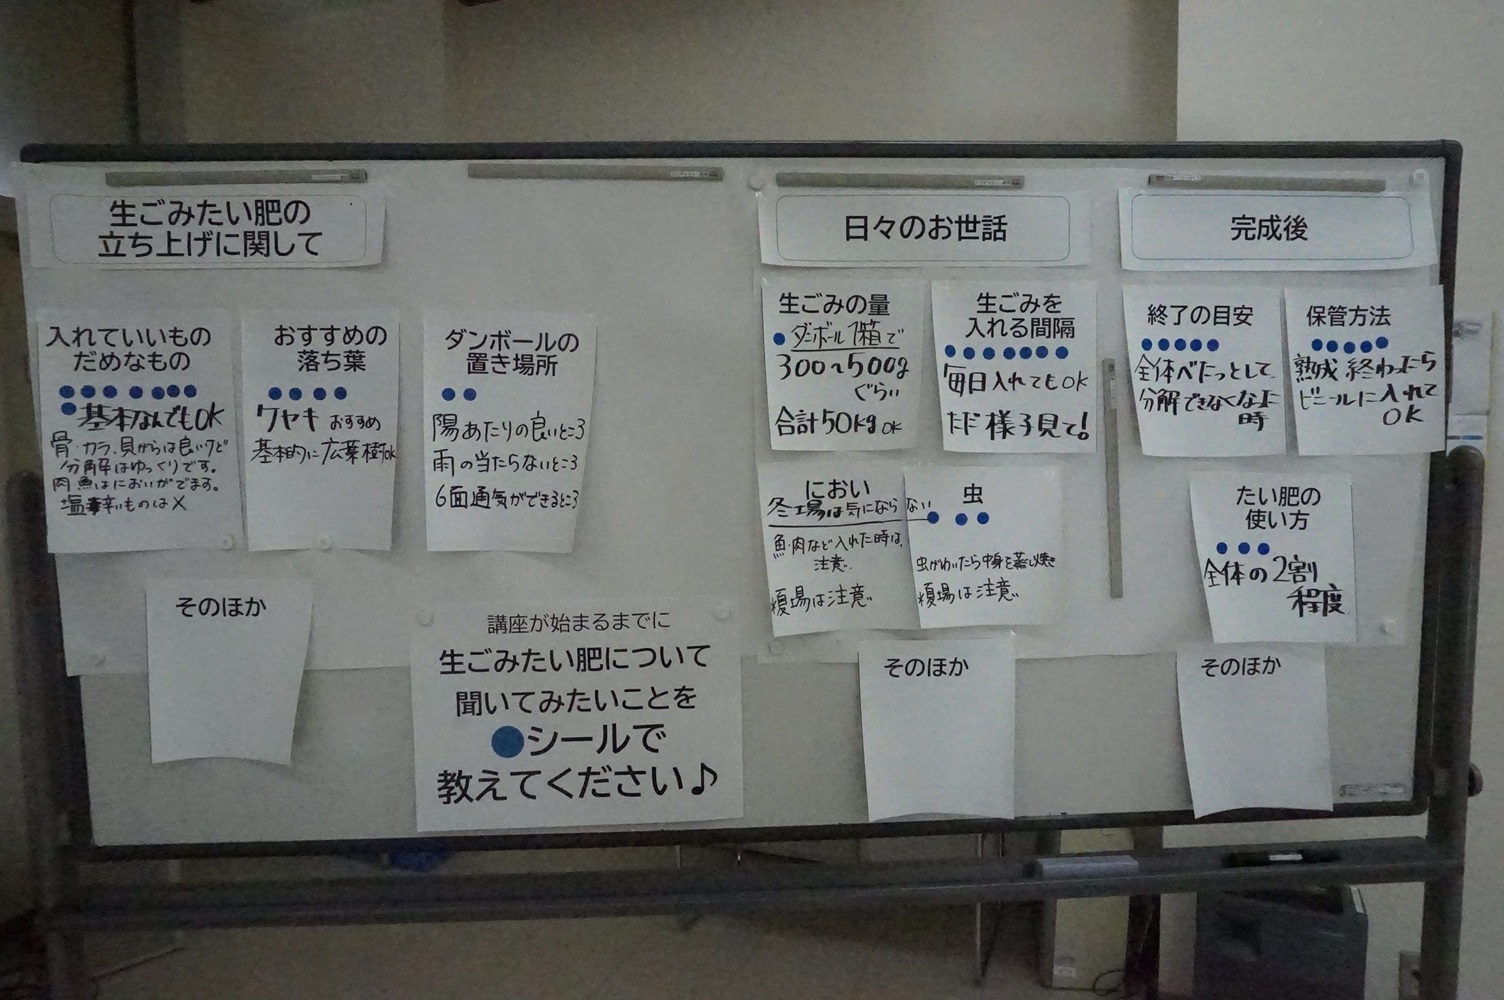 生ごみたい肥の
立ち上げに関して
入れていいもの
だめなもの
基本なんでもOK
骨・カラ、貝からは良いけど
分解はゆっくりです。
肉魚はにおいがでます。
塩辛いものは×
おすすめの
落ち葉
ケヤキ おすすめ
基本的に広葉樹OK
ダンボールの
置き場所
陽あたりの良いところ
雨の当たらないところ
6面通気ができるところ
そのほか
講座が始まるまでに
生ごみたい肥について
聞いてみたいことを
●シールで
教えてください♪
日々のお世話
生ごみの量
ダンボール1箱で
300~500g
ぐらい
合計50kgOK
生ごみを
入れる間隔
毎日入れてもOK
ただ様子見て!
におい
冬場は気にならない
魚・肉など入れた時は、
注意。
夏場は注意
虫
虫がわいたら中身を蒸し焼き
夏場は注意
そのほか
完成後
終了の目安
全体べたっとして
分解できなくなった
時
保管方法
熟成終わったら
ビニールに入れて
OK
たい肥の
使い方
全体の2割
程度
そのほか